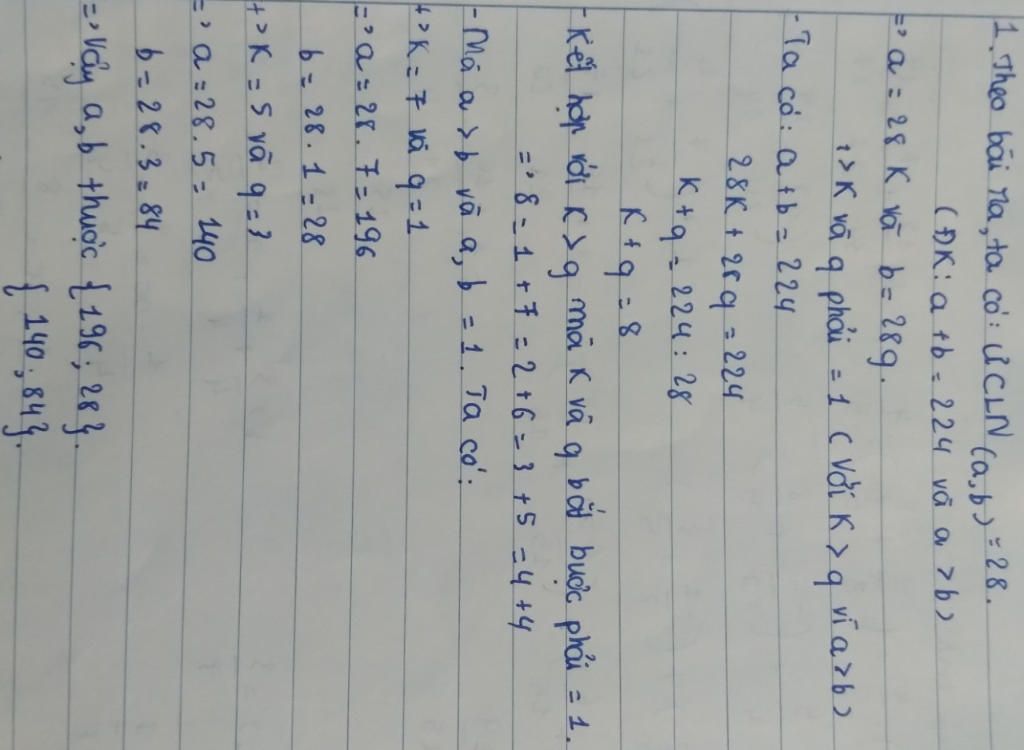 1. Theo bài ra, ta có: ƯCLN (a,b) = 28.
(ĐK: a + b = 224 và a > b)
=> a = 28K và b = 28q.
+> K và q phải = 1 (với K > q vì a > b)
- Ta có: a + b = 224
28K + 28q = 224
K + q = 224 : 28
K + q = 8
- Kết hợp với K > q mà K và q bắt buộc phải = 1.
=> 8 = 1 + 7 = 2 + 6 = 3 + 5 = 4 + 4
- Mà a > b và a, b = 1. Ta có:
+> K = 7 và q = 1
=> a = 28 . 7 = 196
b = 28 . 1 = 28
+> K = 5 và q = 3
=> a = 28 . 5 = 140
b = 28 . 3 = 84
=> Vậy a, b thuộc {196 ; 28}.
{140 ; 84}.